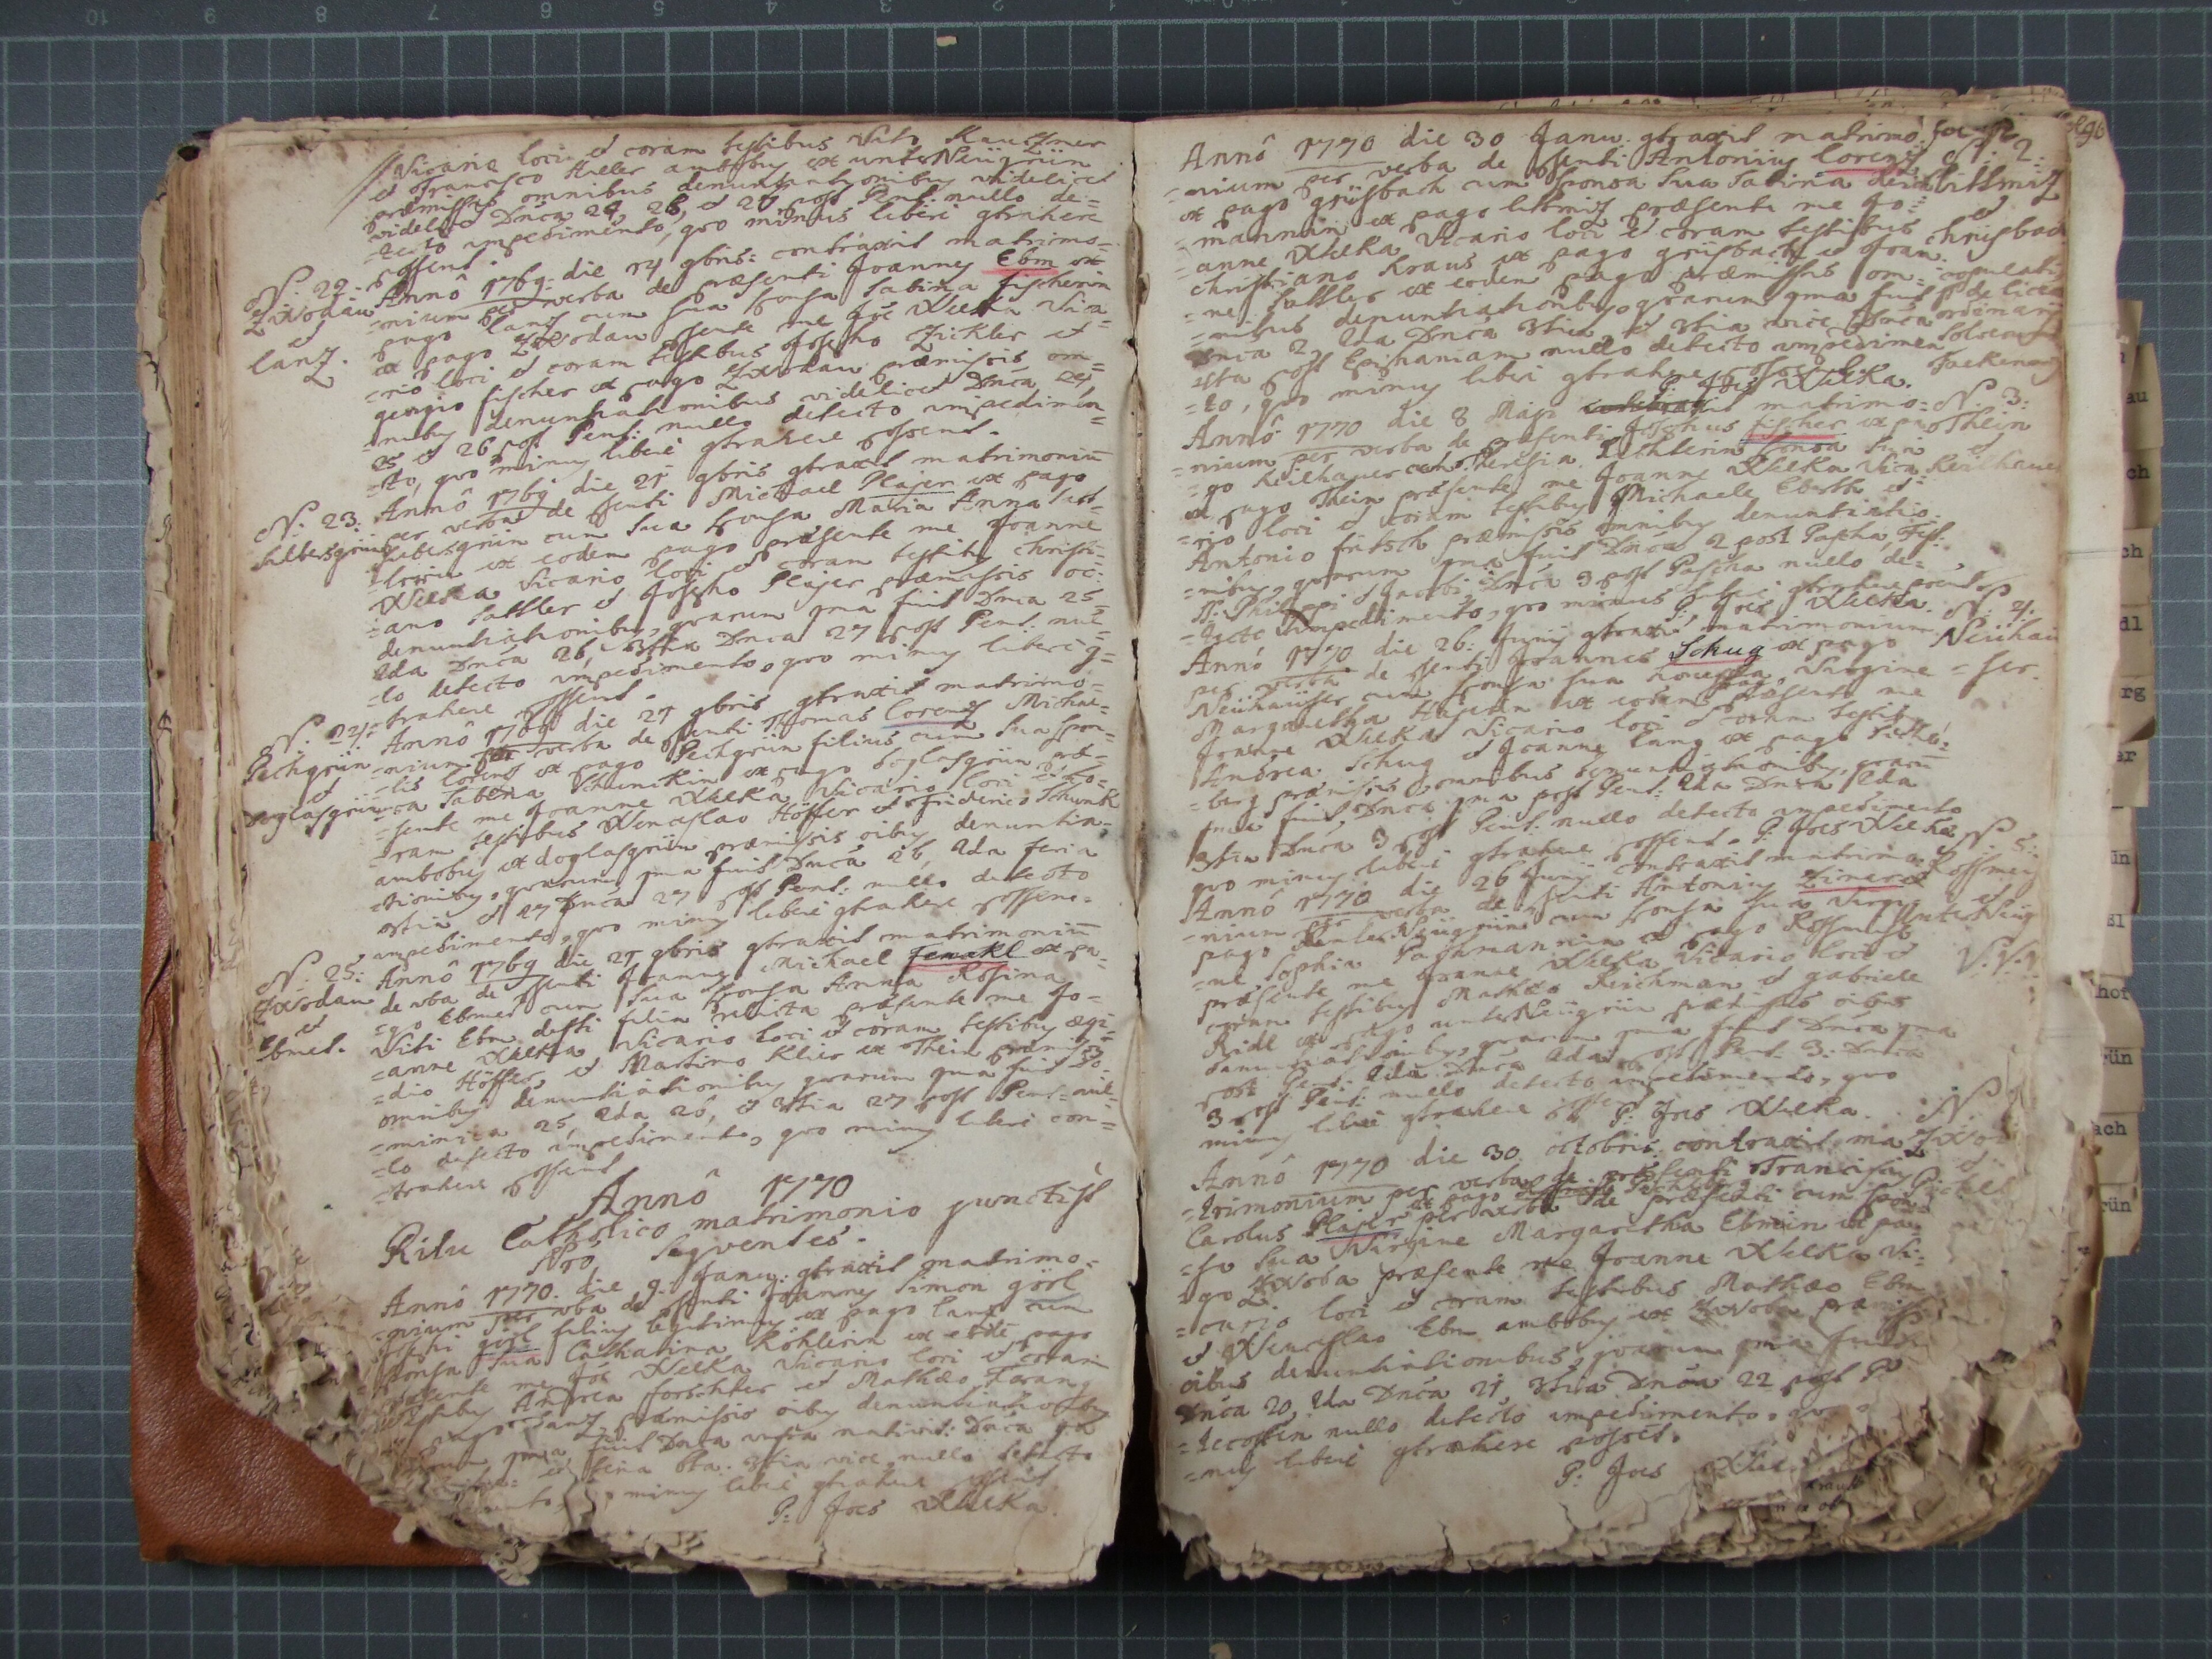 Vicario loci et coram testibus Vito Kauttner
et Francisco Heller ambobus ex unter Neügrün
præmissis omnibus denuntiationibus videlicet
videlicet Dnca 24, 26, et 27 post Pent: nullo de=
=tecto impedimento, quo minus liberè gtrahere
possent.
N: 22.
Zwodau
et
lanz.
Annô 1769: die 14 9bris: contraxit matrimo=
=nium per verba de præsenti Joannes Ebm ex
pago lanz cum sua sponsa Sabina fischerin
ex pago Zwodau pssente me Joe Welka Vica=
=rio loci et coram testibus Josepho Zickler et
georgio fischer ex pago Zwodau præmissis om=
=nibus denuntiationibus videlicet Dnca 24,
25 et 26 post Pent: nullo detecto impedimen=
=to, quo minus liberè gtrahere possent.
N: 23:
Silbersgrün
Annô 1769 die 21 9bris gtraxit matrimoniū
per verba de pssenti Michael Plajer ex pago
silbersgrün cum sua sponsa Maria Anna Satt=
=lerin ex eodem pago præsente me Joanne
Welka Vicario loci et coram testibus Christi=
=ano Sattler et Josepho Plajer præmissis oī:
denuntiationibus, quarum 1ma fuit Dnca 25
2da Dnca 26, 3tia Dnca 27 post Pent: nul=
=lo detecto impedimento, quo minus liberè g=
=trahere possent.
N: 24:
Pechgrün
et
Doglasgrün
Annô 1769 die 21 9bris gtraxit matrimo=
=nium per verba de pssenti Thomas lorenz Michae=
=lis lorenz ex pago Pechgrün filius cum sua spon=
=sa Sabina Schunckin ex pago doglasgrün præ=
=sente me Joanne Welka Vicario loci et co=
=ram testibus Wenceslao Höffer et Friderico Schunk
ambobus ex doglasgrün præmissis oibus denuntia=
=tionibus, quarum 1ma fuit Dnca 26, 2da feria
3tia et 27 Dnca 27 post Pent: nullo detecto
impedimento, quo minus liberè gtrahere possent.
N: 25:
Zwodau
et
Ebmet.
Annô 1769 die 21 9bris gtraxit matrimoniū
de vrba de pssenti Joannes Michael femckl ex pa=
=go Ebmet cum sua sponsa Anna Rosina
Viti Ebm defti filia relicta præsente me Jo=
=anne Welka Vicario loci et coram testibus ægi=
=dio Höffer et Martino Klier ex Thein præmissis
omnibus denuntiationibus quarum 1ma fuit Do=
=minica 25, 2da 26, et 3tia 27 post Pent: nul=
=lo detecto impedimento, quo minus liberè con=
=trahere possent
Annô 1770
Ritu Catholico matrimonio juncti sst
Nro Seqventes.
Annô 1770. die 9. Janu: gtraxit matrimo=
=nium per vrba de pssenti Joannes Simon görl
Josephi görl filius legitimus ex pago lanz cum
sponsa sua Catharina Köhlerin ex eodē pago
pssente me Joe Welka Vicario loci et coram
testibus Andrea forschter et Mathæo
pago lanz præmissis oibus denuntiationibus
1ma fuit Dnca infra nativit: Dnca
feria 6ta. 3tia vice nullo detecto
minus liberè gtrahere possent
P: Joes Welka.
Annô 1770 die 30 Janu: gtraxit matrimo=
=nium per verba de pssenti Antonius lorenz
ex pago grüsbach cum sponsa sua Sabina Reich=
=mannin ex pago littmiz præsente me Jo=
=anne Welka Vicario loci et coram testibus
christiano Kraus ex pago grüsbach et Fran=
=ne Sattler ex eodem pago præmissis om=
=nibus denuntiationibus, quarum 1ma fuit
Dnca 2 2da Dnca 3tia, et 3tia vice Dnca
4ta post Epiphaniam nullo detecto impedimen
=to, quo minus liberè gtrahere possent
P: Joes Welka.
N: 2:
littmiz
et
chrisbach
copulati
de licentia
ordinarii
N: 3:
Thein
et
Keilhauer
Annô 1770 die 8 Majo matrimo=
=nium per verba de præsenti Josephus fischer ex pa=
=go Keilhauer cum Theresia sponsa sua
ex pago Thein præsente me Joanne Welka Vica=
=rio loci et coram testibus Michaele Ebertt et
Antonio fritsch præmissis omnibus denuntiatio=
=nibus, quarum 1ma fuit Dnca 2 post Pascha, Fest:
SS: Philippi et Jacobi, Dnca 3 post Pascha nullo de=
=tecto impedimento, quo minus liberè gtrahere possent
P: Joes Welka
N: 4:
Neühau=
=ser.
Annô 1770 die 26: Junij gtraxit matrimonium
per verba de pssenti Joannes Schug ex pago
Neühauser cum sponsa sua honesta Virgine
Margaretha Hajerin ex eodem pago præsente me
Joanne Welka Vicario loci et coram testibus
Andrea Schug et Joanne lang ex pago
=berg præmissis omnibus denuntiationibus, quarū
1ma fuit Dnca 1ma post Pent: 2da Dnca 2da
3tia Dnca 3 post Pent: nullo detecto impedimento
quo minus liberè gtrahere possent. P: Joes Welka
N: 5:
Rossmeis
et
UnterNeüg
V: V: V
Annô 1770 die 26 Junij contraxit matrimo=
=nium per verba de pssenti Antonius Zimer ex
pago Unter Neügrün cum sponsa sua Virgi=
=ne Sophia ex pago Rossmeis
præsente me Joanne Welka Vicario loci et
coram testibus Mathæo Reichman et gabriele
Ridl ex pago unter Neügrün præmissis oibus
denuntiationibus, quarum 1ma fuit Dnca 1ma
post Pent: 2da Dnca 2da post Pent: 3: Dnca
3 post Pent: nullo detecto impedimento, quo
minus liberè gtrahere possent
P: Joes Welka.
N
Zwod
et
Annô 1770 die 30 octobris contraxit ma=
=trimonium per verba de præsenti Franciscus
Carolus Plajer per verba de præsenti cum spon=
=sa sua Virgine Margaretha Ebmin ex pa=
=go Zwoda præsente me Joanne Welka Vi=
=cario loci et coram testibus Mathæo Ebm
et Wenceslao Ebm ambobus ex Zwoda præmissis
oibus denuntiationibus, quarum 1ma fuit
Dnca 20, 2da Dnca 21, 3tia Dnca 22 post P
=tecosten nullo detecto impedimento, quo
=nus liberè gtrahere posset.
P: Joes